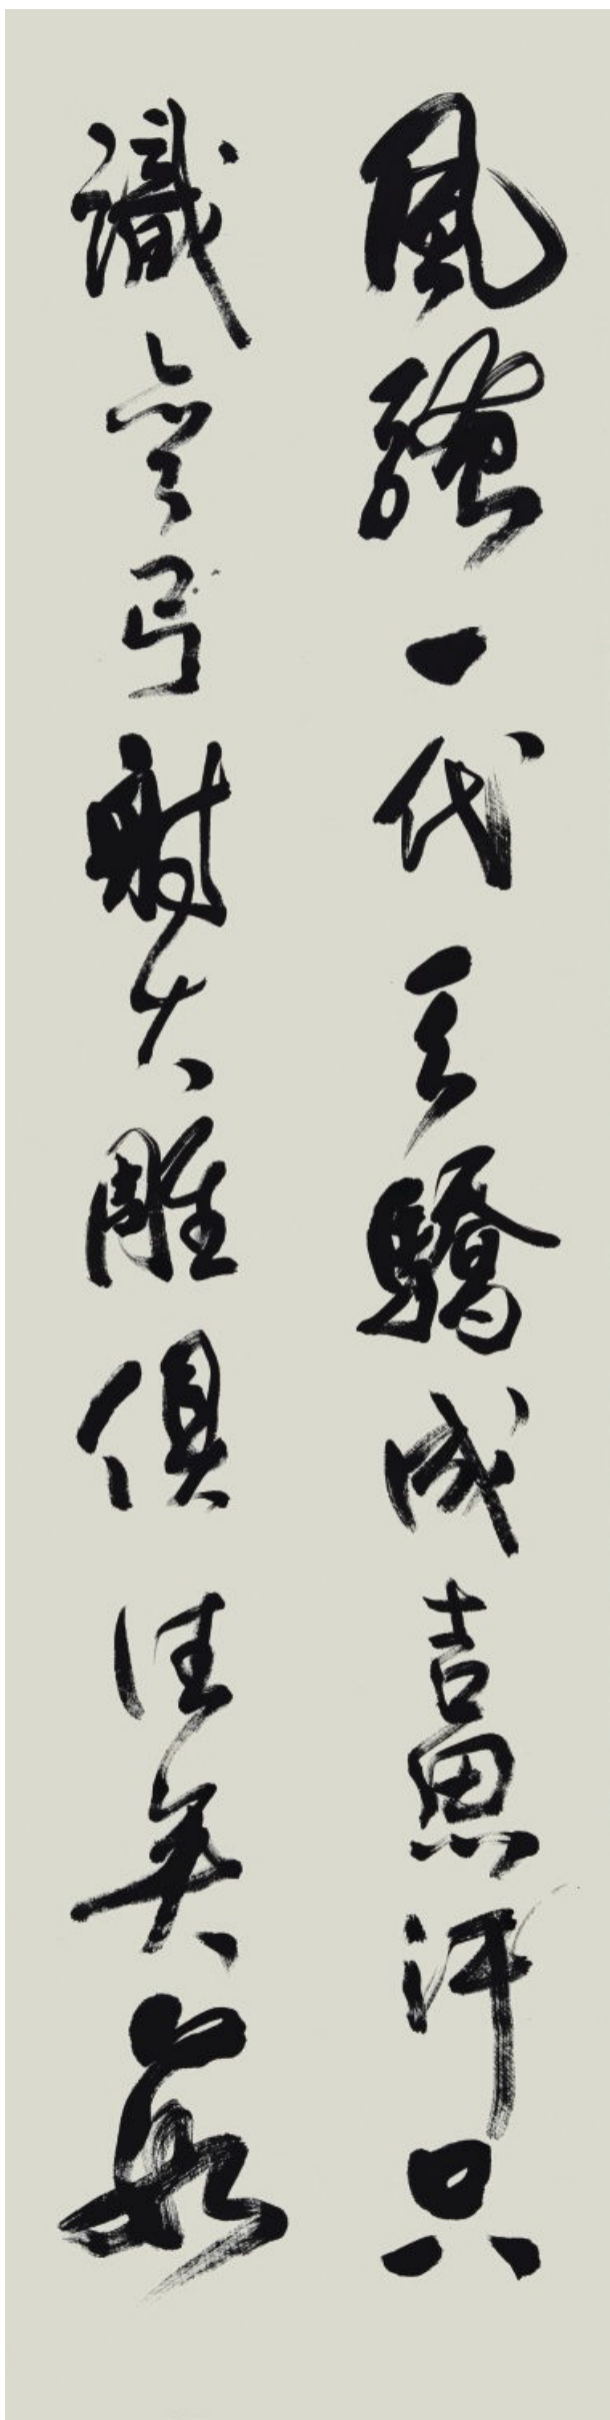 風騷一代天驕成吉思汗只
識彎弓射大雕俱往矣數